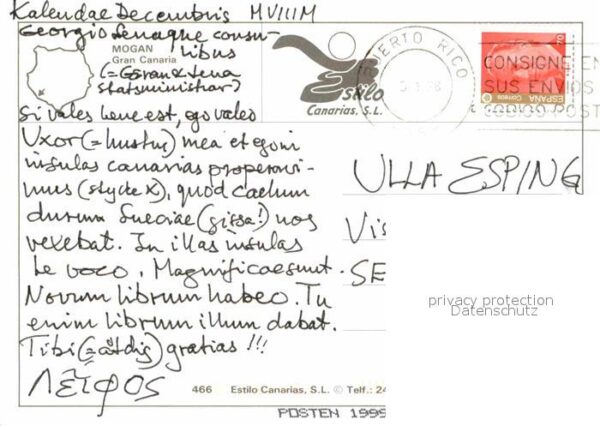 Kalendae Decembris MVIIIM
Georgio Lenaque consu-
libus
(=Göran & Lena
statsministrar)
MOGAN
Gran Canaria
Si vales bene est, ego valeo
Uxor (= hustru) mea et ego in
insulas canarias properavi-
mus (stycke X), quod caelum
durum Sueciae (gissa!) nos
vexebat. In illas insulas
te voco. Magnificae sunt.
Novum librum habeo. Tu
enim librum illum dabat.
Tibi (= åt dig) gratias !!!
ΛΕΤΦΟΣ
Estilo
Canarias, S.L.
PUERTO RICO
CONSIGNE EN
SUS ENVIOS
CODIGO POST
ESPAÑA
Correos
20
ULLA ESPING
Vis
SE
privacy protection
Datenschutz
466 Estilo Canarias, S.L. © Telf.: 24
POSTEN 1999